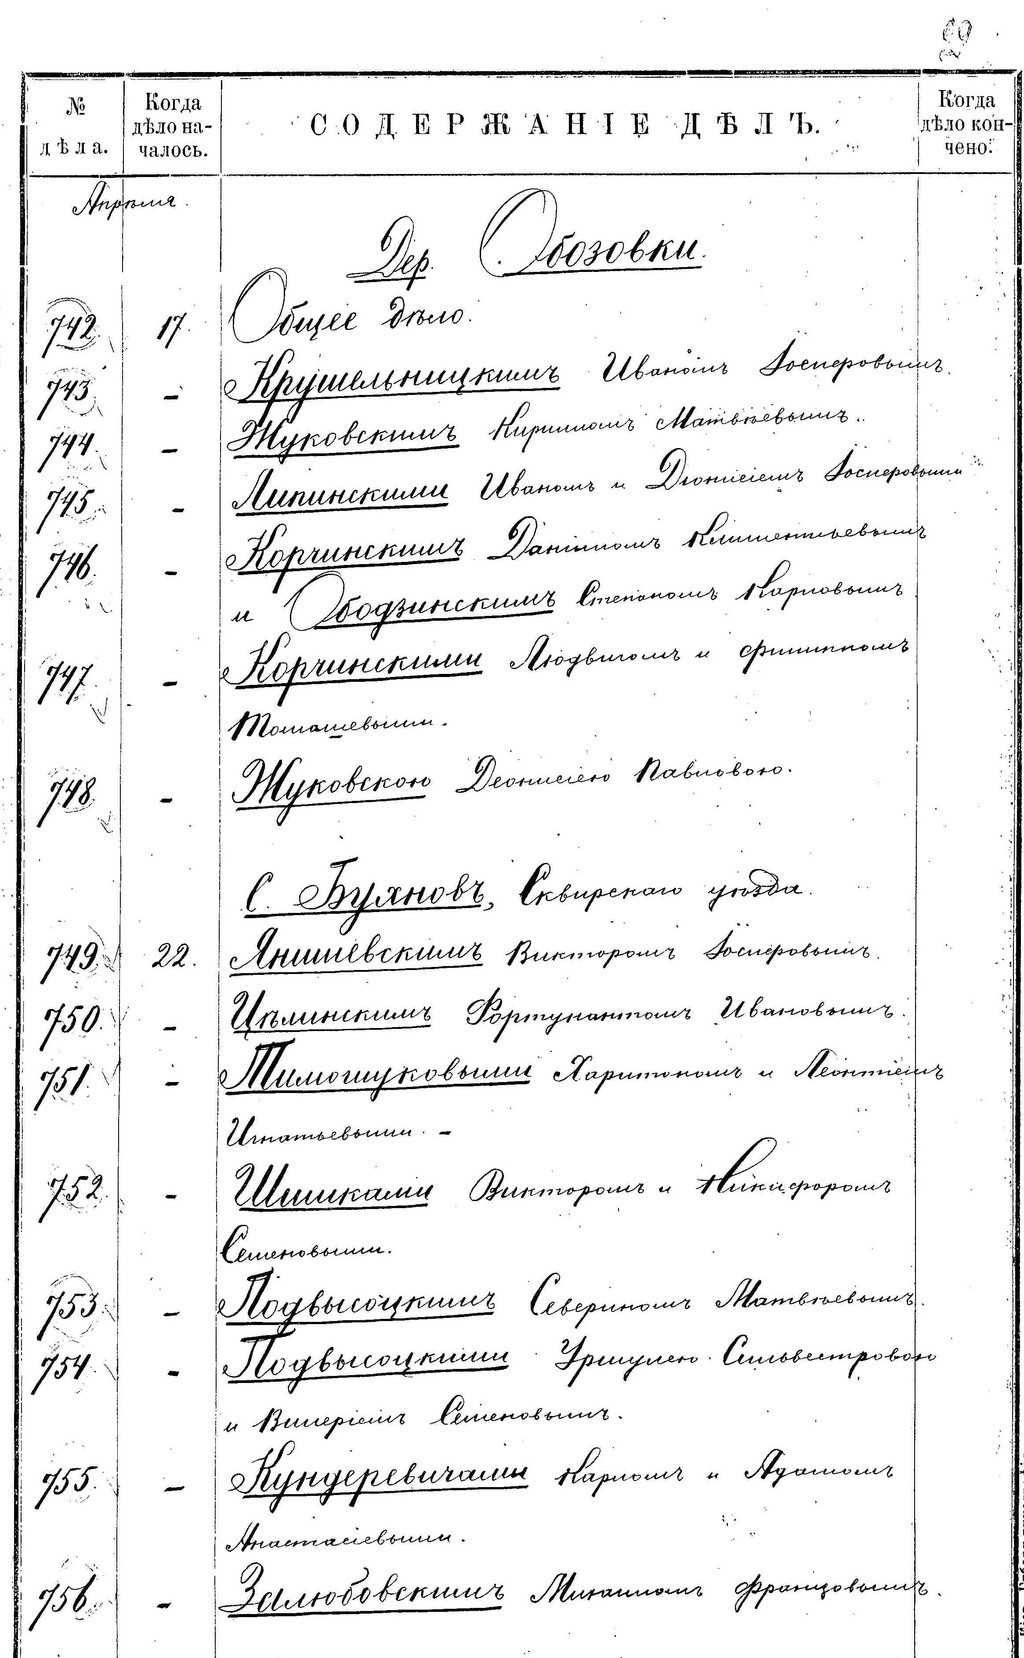 69
№ дѣла.
Когда дѣло началось.
СОДЕРЖАНІЕ ДѢЛЪ.
Когда дѣло кончено.
Апрѣля.
Дер. Обозовки.
742. 17. Общее дѣло.
743. - Крушельницкимъ Иваномъ Іосифовымъ.
744. - Жуковскимъ Кириломъ Матвѣевымъ.
745. - Липинскими Иваномъ и Діонисіемъ Іосифовыми
746. - Корчинскимъ Даніиломъ Климентьевымъ
и Ободзинскимъ Степаномъ Карповымъ
747. - Корчинскими Людвигомъ и Филипомъ
Томашевыми.
748. - Жуковскою Деонисіею Павловою.
С. Буяновъ, Сквирскаго уѣзда.
749. 22. Янишевскимъ Викторомъ Іосифовымъ.
750. - Цѣлинскимъ Фортунатомъ Ивановымъ.
751. - Тимошуковыми Харитономъ и Леонтіемъ
Игнатьевыми. -
752. - Шишками Викторомъ и Никифоромъ
Семеновыми.
753. - Подвысоцкимъ Севериномъ Матвѣевымъ.
754. - Подвысоцкими Уршулею Сильвестровою
и Валеріемъ Семеновымъ.
755. - Кундеревичами Карломъ и Адамомъ
Анастасіевыми.
756. - Залюбовскимъ Михаиломъ Францовымъ.